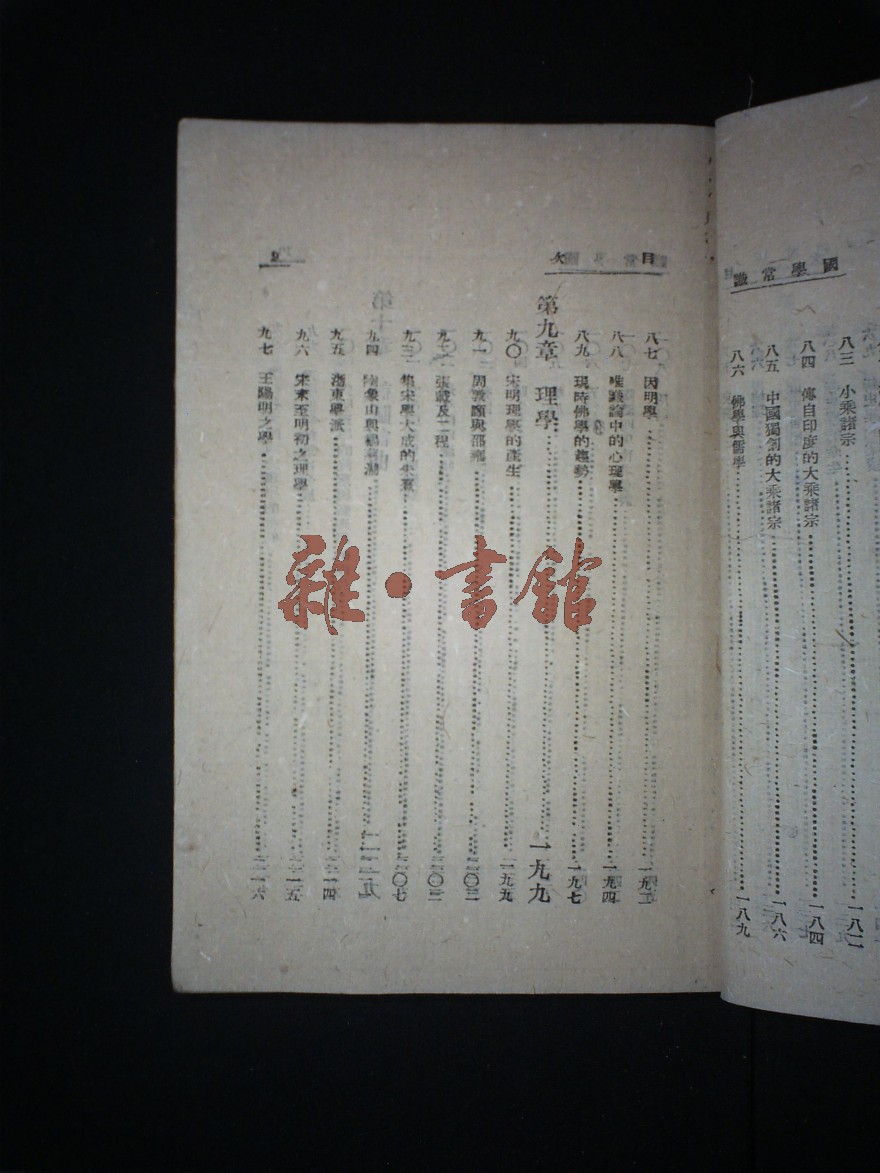 國學常識
八三 小乘諸宗 一八二
八四 傳自印度的大乘諸宗 一八四
八五 中國獨創的大乘諸宗 一八六
八六 佛學與儒學 一八九
目次
9
八七 因明學
八八 唯識論中的心理學 一九四
八九 現時佛學的趨勢 一九七
第九章 理學 一九九
九〇 宋明理學的產生 一九九
九一 周敦頤與邵雍
九二 張載及二程
九三 集宋學大成的朱熹 二〇七
九四 陸象山與楊慈湖
九五 浙東學派 二一四
九六 宋末至明初之理學 二一五
九七 王陽明之學 二一六
雜·書館